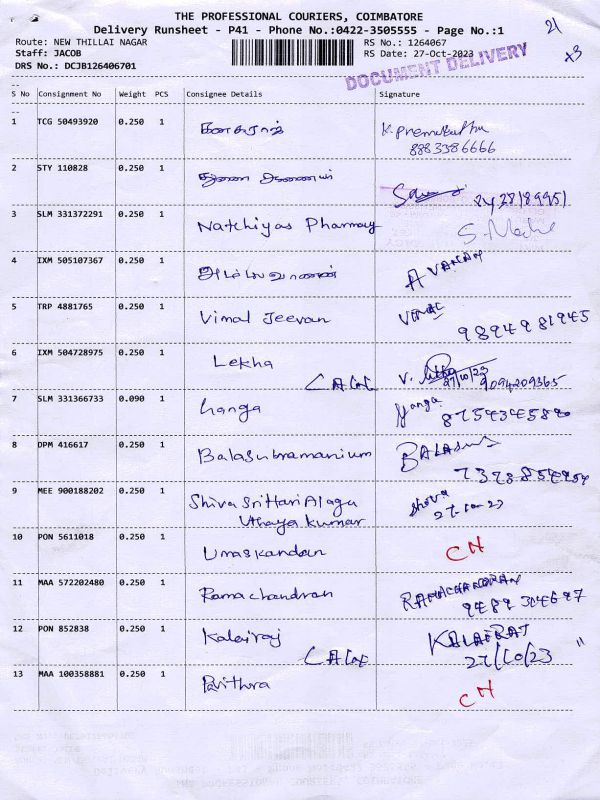 THE PROFESSIONAL COURIERS, COIMBATORE
Delivery Runsheet - P41 - Phone No.:0422-3505555 - Page No.:1
Route: NEW THILLAI NAGAR
RS No.: 1264067
Staff: JACOB
RS Date: 27-Oct-2023
DRS No.: DCJB126406701
DOCUMENT DELIVERY
21
x3
S No Consignment No Weight PCS Consignee Details Signature
1 TCG 50493920 0.250 1 K. Premalatha
8883386666
2 STY 110828 0.250 1
3 SLM 331372291 0.250 1 Natchiyas Pharmacy
4 IXM 505107367 0.250 1 AVANAM
5 TRP 4881765 0.250 1 Vimal Jeevan VIMAL
9894981945
6 IXM 504728975 0.250 1 Lekha
27/10/23 9094209365
7 SLM 331366733 0.090 1 Ganga Ganga
8 DPM 416617 0.250 1 Balasubramanium
9 MEE 900188202 0.250 1 Shiva Sri Hari Alagu Shiva
Uthaya kumar 27-10-23
10 PON 5611018 0.250 1 Umaskandan CN
11 MAA 572202480 0.250 1 Ramachandran RAMACHANDRAN
12 PON 852838 0.250 1 Kalairaj KALAIRAJ
27/10/23 "
13 MAA 100358881 0.250 1 Pavithra CN